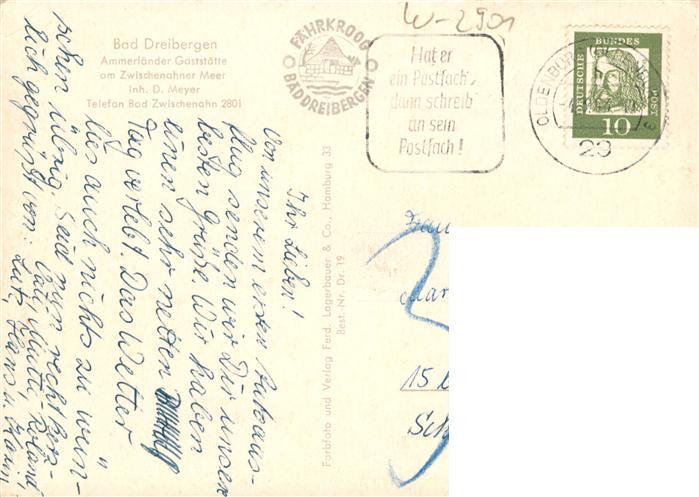 W-2901
Bad Dreibergen
Ammerländer Gaststätte
am Zwischenahner Meer
Inh. D. Meyer
Telefon Bad Zwischenahn 2801
FÄHRKROOG
BAD DREIBERGEN
Hat er
ein Postfach,
dann schreib
an sein
Postfach!
OLDENBURG
23
DEUTSCHE BUNDESPOST
10
Ihr Lieben!
Von unserem ersten Autoaus-
flug senden wir Dir unsere
besten Grüße. Wir haben
einen sehr netten
Tag verlebt. Das Wetter
lies auch nichts zu wün-
schen übrig. Seid nun recht herz-
lich gegrüsst von: Mutti, Roland
Lutz, Hans u.
Farbfoto und Verlag Ferd. Lagerbauer & Co., Hamburg 33
Best.-Nr. Dr. 19
Mar
15
Sch